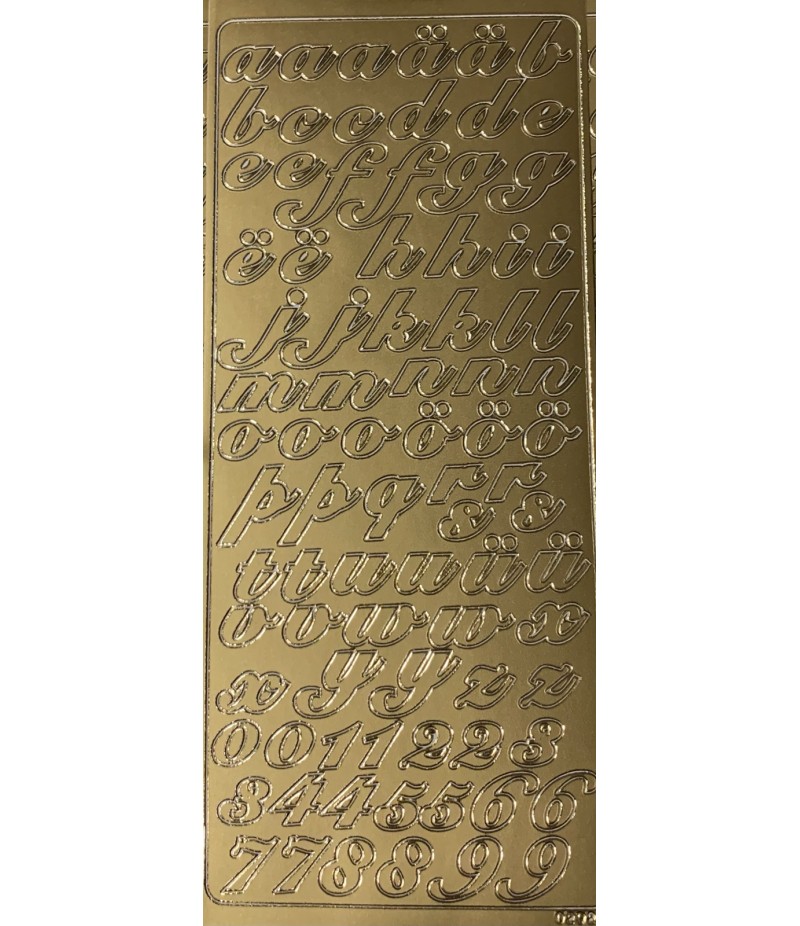 a a a a ä ä b
b c c d d e
e e f f g g
ë ë h h i i
j j k k l l
m m n n n
o o o ö ö ö
p p q r r
s s
t t u u ü ü
v v w w x
x y y z z
0 0 1 1 2 2 3
3 4 4 5 5 6 6
7 7 8 8 9 9